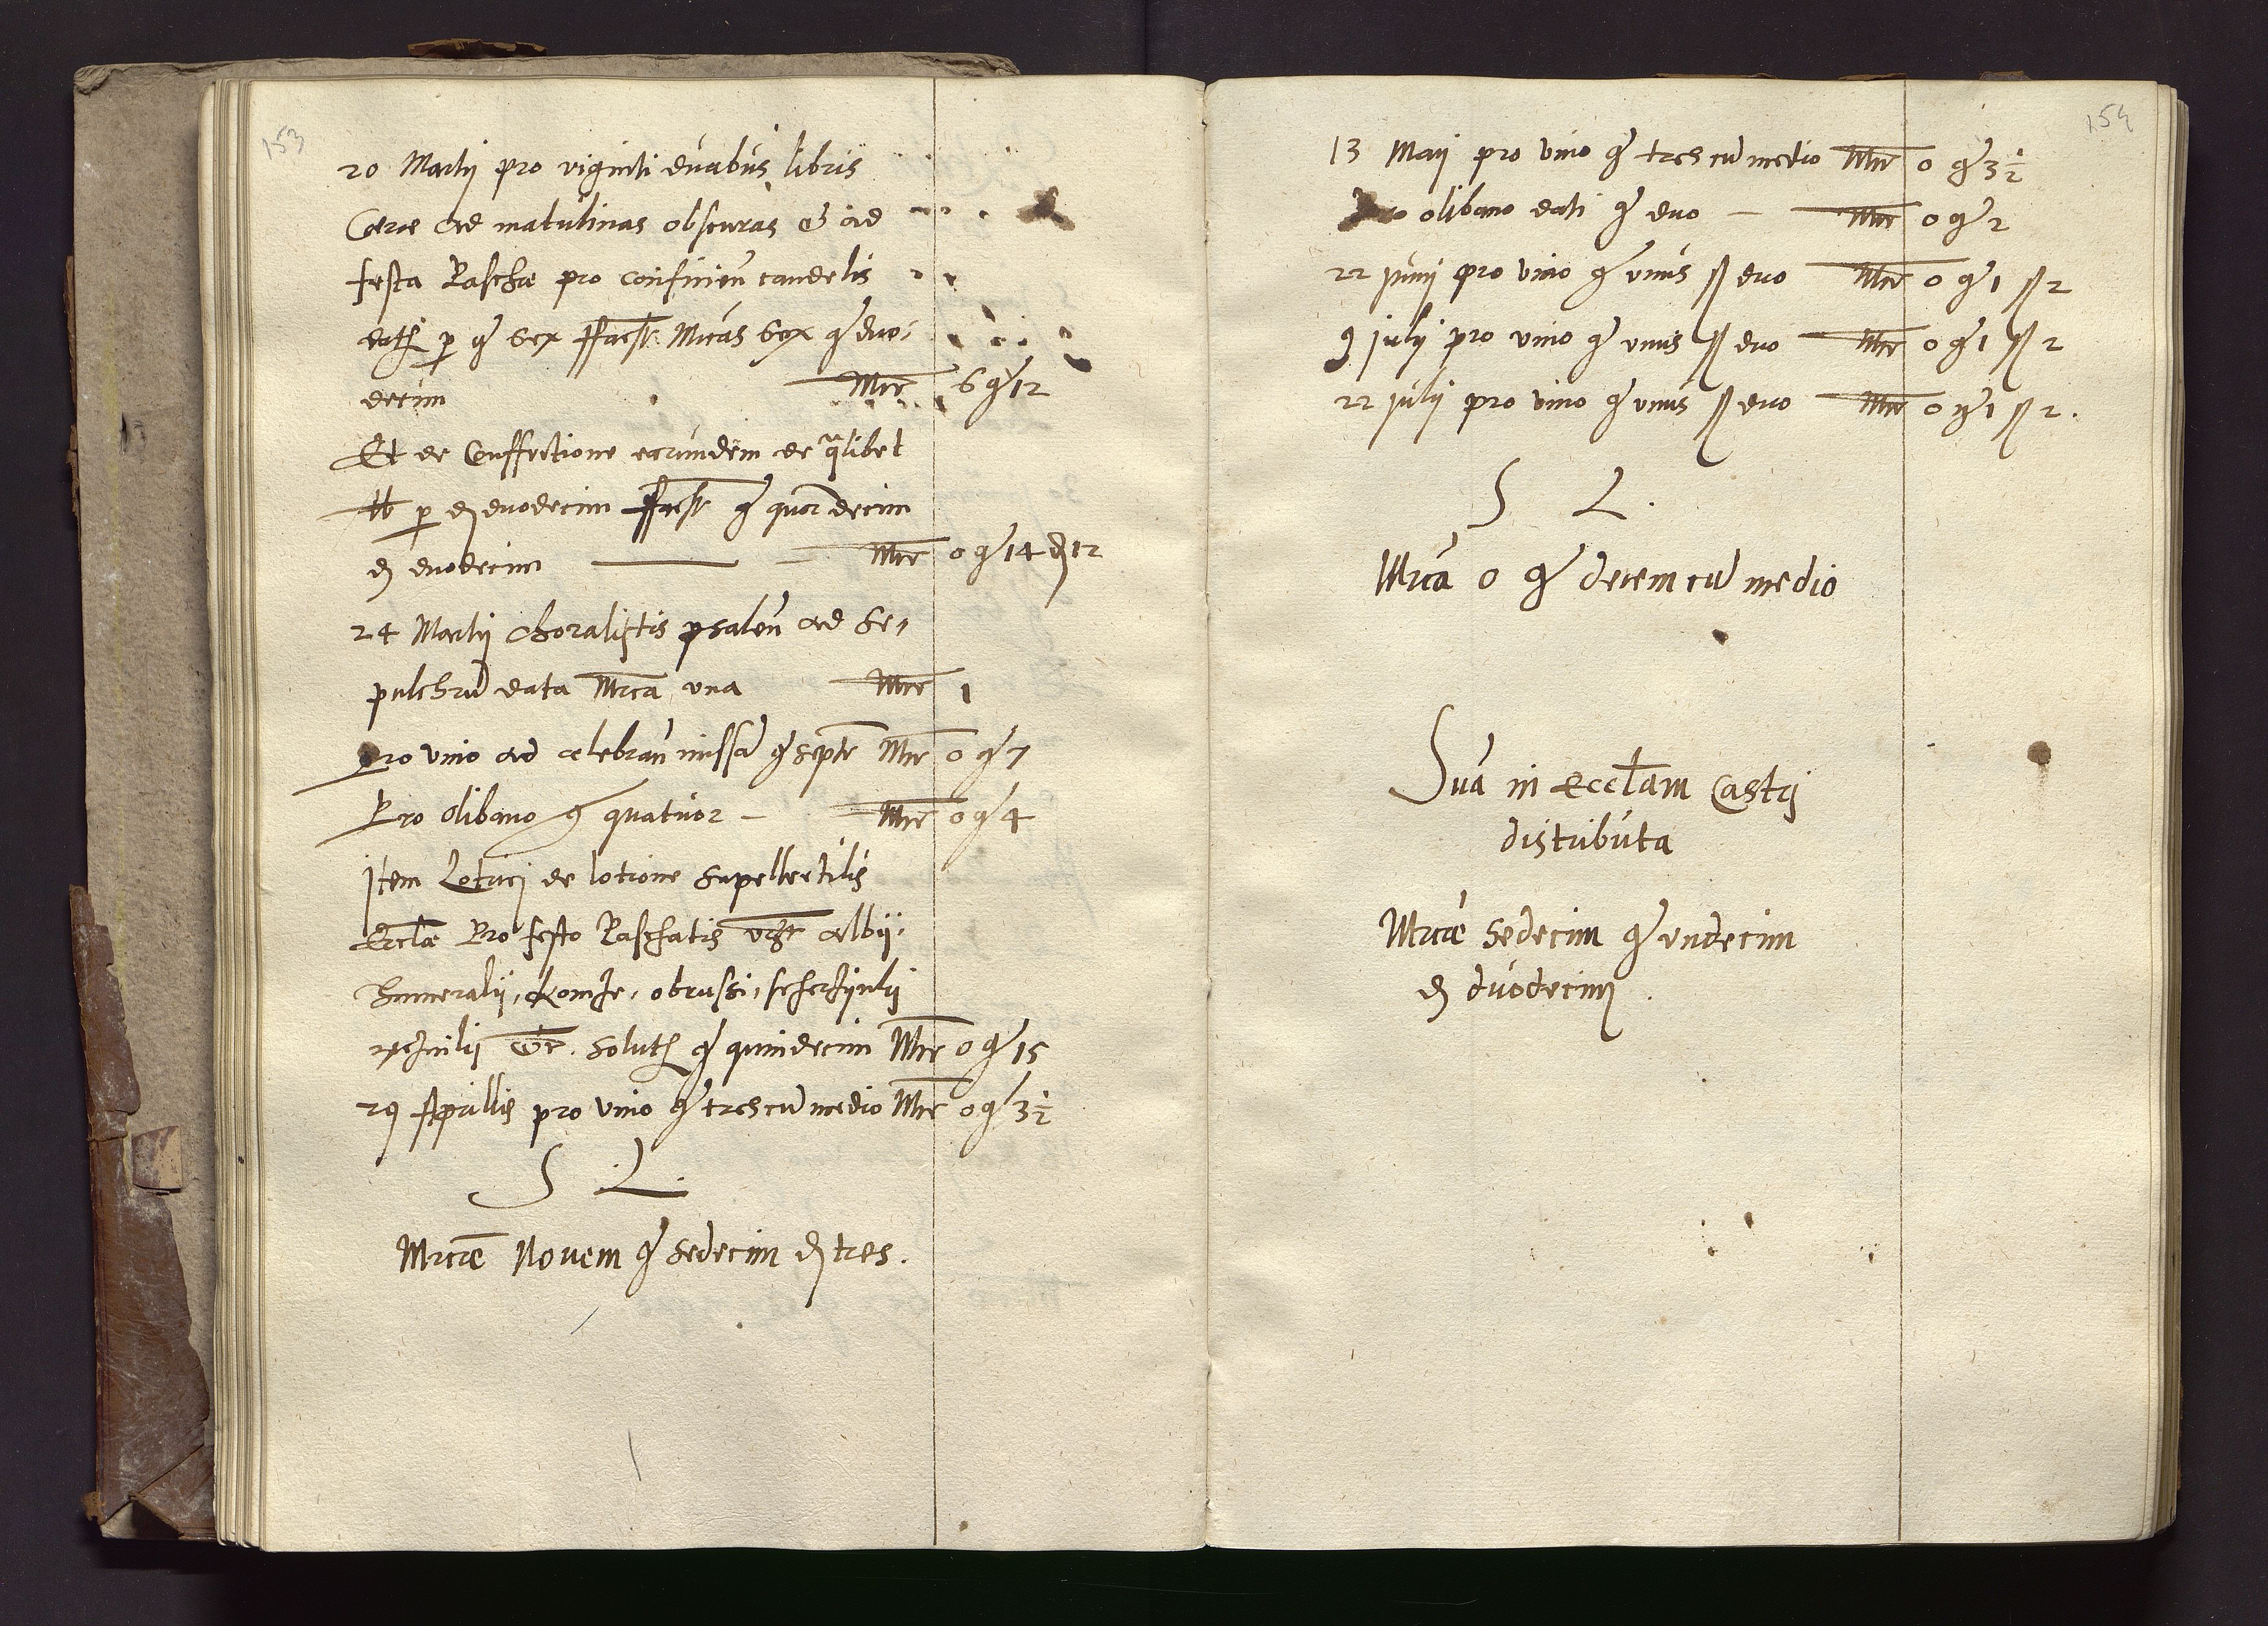 153
20 Martij pro viginti duabus libris
Cerae ad matutinas obscuras & ad
festa Paschae pro conficien candelis
dat p g sex ffacit Mrcas sex g duo,
decim Mrc 6 g 12
Et de Conffectione earundem de qlibet
lb p d duodecim ffacit g quatordecim
d duodecim — Mrc 0 g 14 d 12
24 Martij choralistis psalen ad se,
pulchrū data Mrca una Mrc 1
pro vino ad celebran missā g septe Mrc 0 g 7
Pro olibano g quatuor — Mrc 0 g 4
Item Lotrici de lotione supellectilis
Eccłae Pro festo Paschatis vdt albij,
humeralij, komze, obrussi,
etc. solut g quindecim Mrc 0 g 15
29 Aprillis pro vino g tres cū medio Mrc 0 g 3 1/2
S L.
Mrcae Novem g sedecim d tres.
154
13 Maij pro vino g tres cū medio Mrc 0 g 3 1/2
Pro olibano dati g duo — Mrc 0 g 2
22 Junij pro vino g unus ſſ duo Mrc 0 g 1 ſſ 2
9 Julij pro vino g unus ſſ duo Mrc 0 g 1 ſſ 2
22 Julij pro vino g unus ſſ duo Mrc 0 g 1 ſſ 2.
S L.
Mrca 0 g decem cū medio
Suā in Eccłam Castrj
distributa
Mrcae sedecim g undecim
d duodecim.